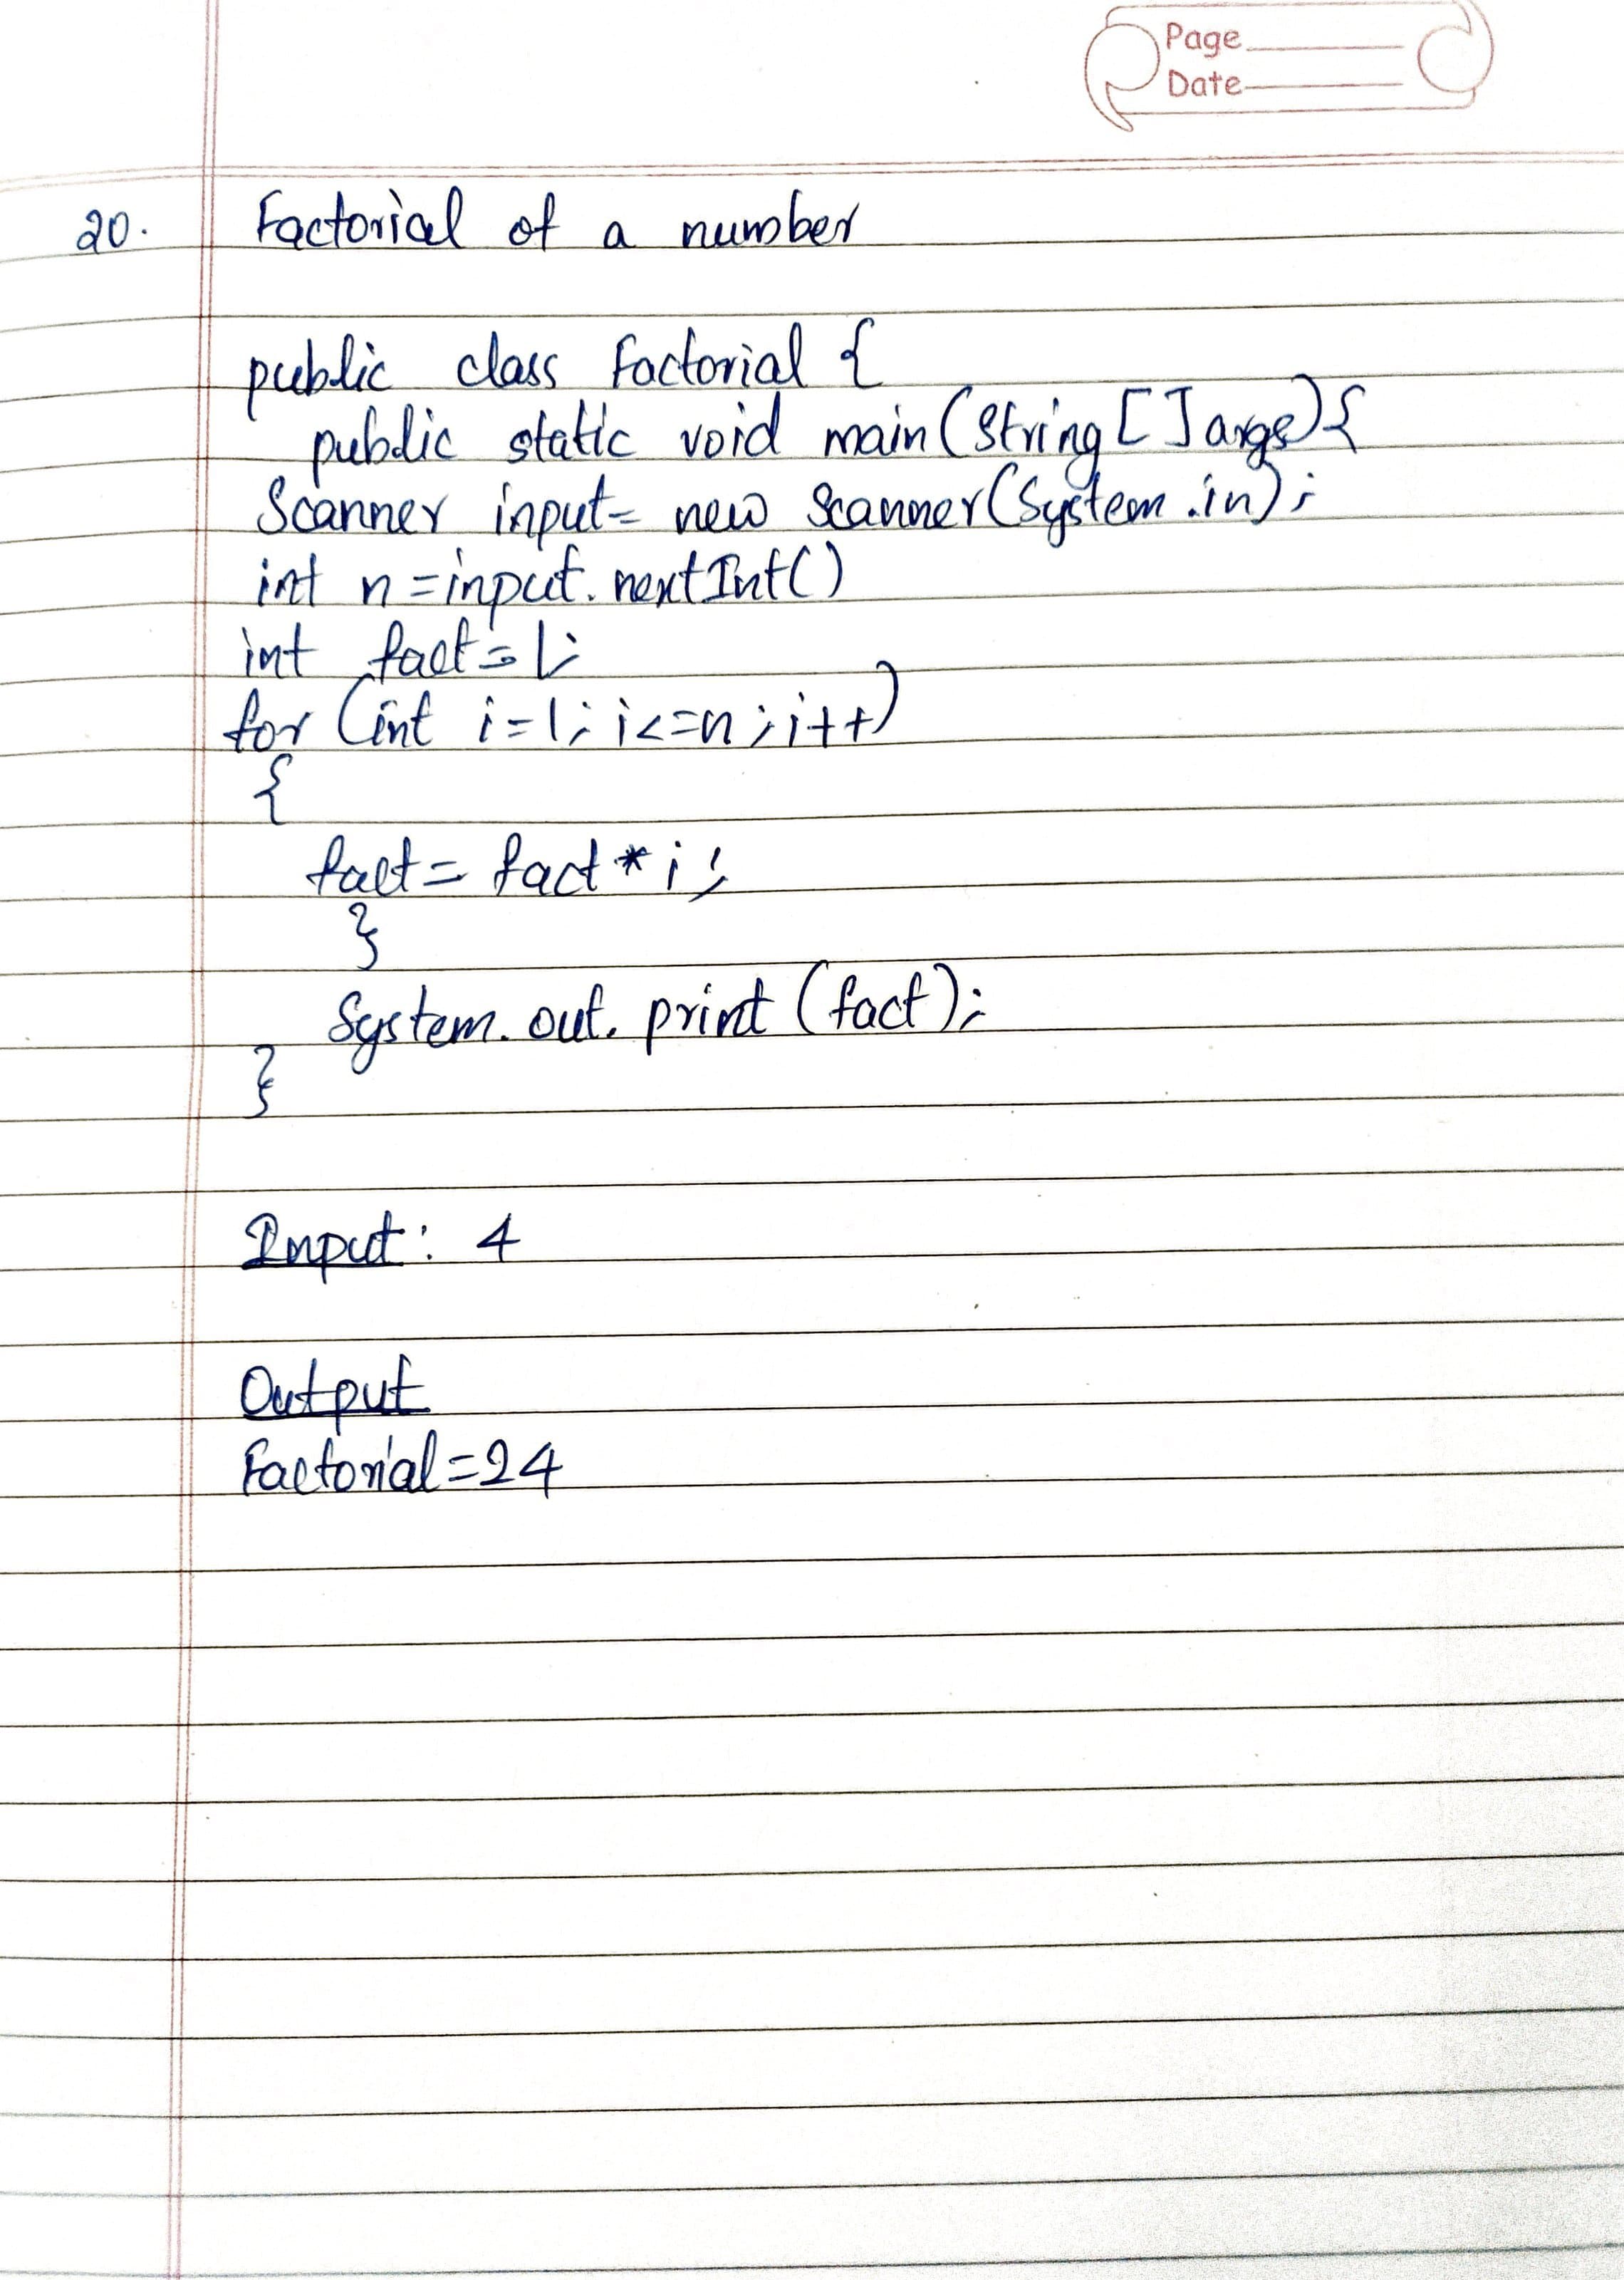 Page
Date
20. Factorial of a number
public class Factorial {
public static void main(String[] args){
Scanner input= new Scanner(System.in);
int n=input.nextInt()
int fact=1;
for (int i=1; i<=n; i++)
{
fact= fact*i;
}
System.out.print(fact);
}
Input: 4
Output
Factorial=24